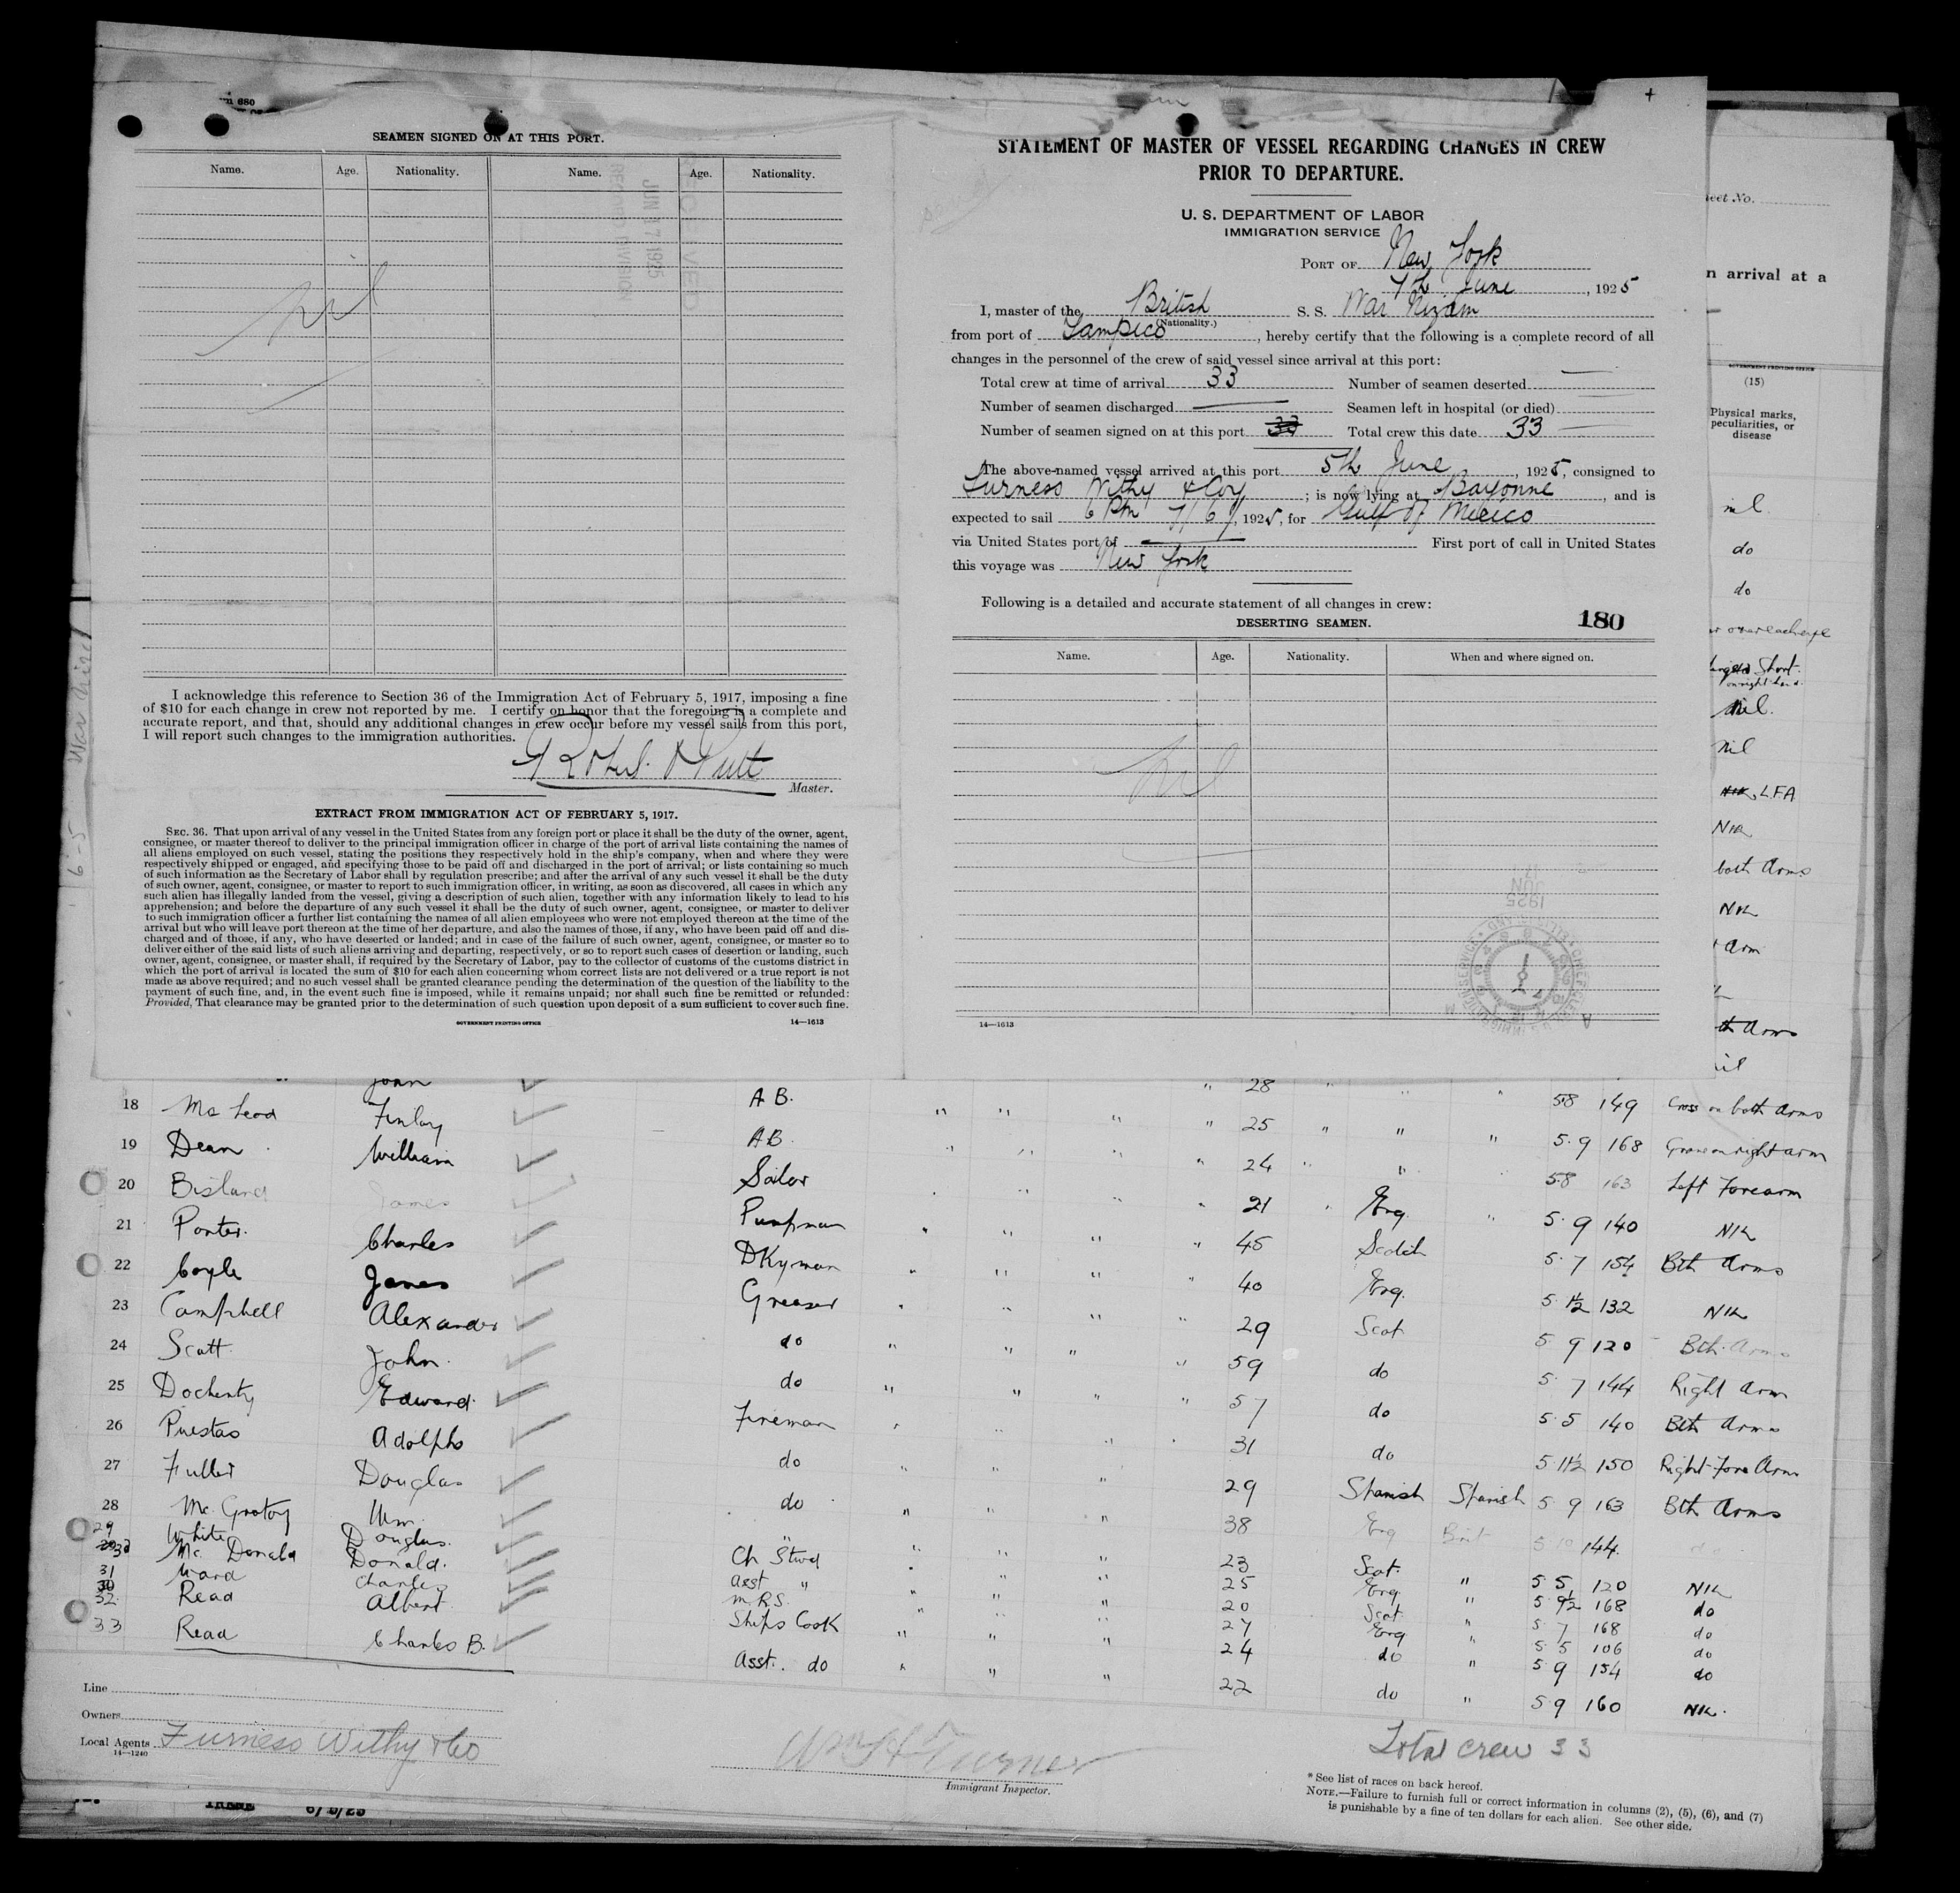 SEAMEN SIGNED ON AT THIS PORT.
Name. Age. Nationality. Name. Age. Nationality.
RECEIVED
JUN 17 1925
RECORD DIVISION
nil
I acknowledge this reference to Section 36 of the Immigration Act of February 5, 1917, imposing a fine
of $10 for each change in crew not reported by me. I certify on honor that the foregoing is a complete and
accurate report, and that, should any additional changes in crew occur before my vessel sails from this port,
I will report such changes to the immigration authorities.
Master.
EXTRACT FROM IMMIGRATION ACT OF FEBRUARY 5, 1917.
SEC. 36. That upon arrival of any vessel in the United States from any foreign port or place it shall be the duty of the owner, agent,
consignee, or master thereof to deliver to the principal immigration officer in charge of the port of arrival lists containing the names of
all aliens employed on such vessel, stating the positions they respectively hold in the ship's company, when and where they were
respectively shipped or engaged, and specifying those to be paid off and discharged in the port of arrival; or lists containing so much
of such information as the Secretary of Labor shall by regulation prescribe; and after the arrival of any such vessel it shall be the duty
of such owner, agent, consignee, or master to report to such immigration officer, in writing, as soon as discovered, all cases in which any
such alien has illegally landed from the vessel, giving a description of such alien, together with any information likely to lead to his
apprehension; and before the departure of any such vessel it shall be the duty of such owner, agent, consignee, or master to deliver
to such immigration officer a further list containing the names of all alien employees who were not employed thereon at the time of the
arrival but who will leave port thereon at the time of her departure, and also the names of those, if any, who have been paid off and dis-
charged and of those, if any, who have deserted or landed; and in case of the failure of such owner, agent, consignee, or master so to
deliver either of the said lists of such aliens arriving and departing, respectively, or so to report such cases of desertion or landing, such
owner, agent, consignee, or master shall, if required by the Secretary of Labor, pay to the collector of customs of the customs district in
which the port of arrival is located the sum of $10 for each alien concerning whom correct lists are not delivered or a true report is not
made as above required; and no such vessel shall be granted clearance pending the determination of the question of the liability to the
payment of such fine, and, in the event such fine is imposed, while it remains unpaid; nor shall such fine be remitted or refunded:
Provided, That clearance may be granted prior to the determination of such question upon deposit of a sum sufficient to cover such fine.
GOVERNMENT PRINTING OFFICE 14—1613
STATEMENT OF MASTER OF VESSEL REGARDING CHANGES IN CREW
PRIOR TO DEPARTURE.
U. S. DEPARTMENT OF LABOR
IMMIGRATION SERVICE
PORT OF New York
7th June, 1925
I, master of the British S. S. War Nizam
(Nationality.)
from port of Tampico, hereby certify that the following is a complete record of all
changes in the personnel of the crew of said vessel since arrival at this port:
Total crew at time of arrival 33 Number of seamen deserted
Number of seamen discharged Seamen left in hospital (or died)
Number of seamen signed on at this port 33 Total crew this date 33
The above-named vessel arrived at this port 5th June, 1925, consigned to
Furness Withy & Coy; is now lying at Bayonne, and is
expected to sail 6 Pm 7/6/, 1925, for Gulf of Mexico
via United States port of First port of call in United States
this voyage was New York
Following is a detailed and accurate statement of all changes in crew:
DESERTING SEAMEN. 180
Name. Age. Nationality. When and where signed on.
nil
1925
JUN
17
14—1613
eet No.
n arrival at a
GOVERNMENT PRINTING OFFICE
(15)
Physical marks,
peculiarities, or
disease
nil.
do
do
nil.
nil
L.F.A
Nil
both Arms
Nil
Arm
Arms
nil
John 28
18 McLeod Finlay A.B. " " " 25 " " " 5 8 149 Cross on both Arms
19 Dean William A.B. " " " 24 " " 5 9 168 right arm
20 Bisland James Sailor " " " 21 " Eng. " 5 8 163 Left Forearm
21 Porter. Charles Pumpman " " " 45 Scotch 5 9 140 Nil
22 Coyle James DKyman " " " 40 Eng. 5 7 154 Bth Arms
23 Campbell Alexander Greaser " " " 29 Scot 5 1½ 132 Nil
24 Scott John. do " " " 59 do 5 9 120 Bth Arms
25 Docherty Edward. do " " " 57 do 5 7 144 Right Arm
26 Puestas Adolpho Fireman " " 31 do 5 5 140 Bth Arms
27 Fuller Douglas do " " " 29 Spanish Spanish 5 11½ 150 Right Fore Arm
28 Mc. Grotoy Wm. do " " " 38 Eng Brit 5 9 163 Bth Arms
29 White Douglas. " 23 Scot. 5 10 144
30 Mc. Donald Donald. Ch Stwd " " " 25 Eng. " 5 5 120 Nil
31 Ward Charles Asst " " " " 20 Scot. " 5 9½ 168 do
32 Read Albert M.R.S. " " " 27 Eng " 5 7 168 do
33 Read Charles B. Ships Cook " " " 24 do " 5 5 106 do
Asst. do " " " 22 do " 5 9 154 do
5 9 160 Nil.
Line
Owners
Local Agents Furness Withy & Co
14—1240
Wm H Turner
Immigrant Inspector.
Total crew 33
* See list of races on back hereof.
NOTE.—Failure to furnish full or correct information in columns (2), (5), (6), and (7)
is punishable by a fine of ten dollars for each alien. See other side.
IRENE 6/5/25